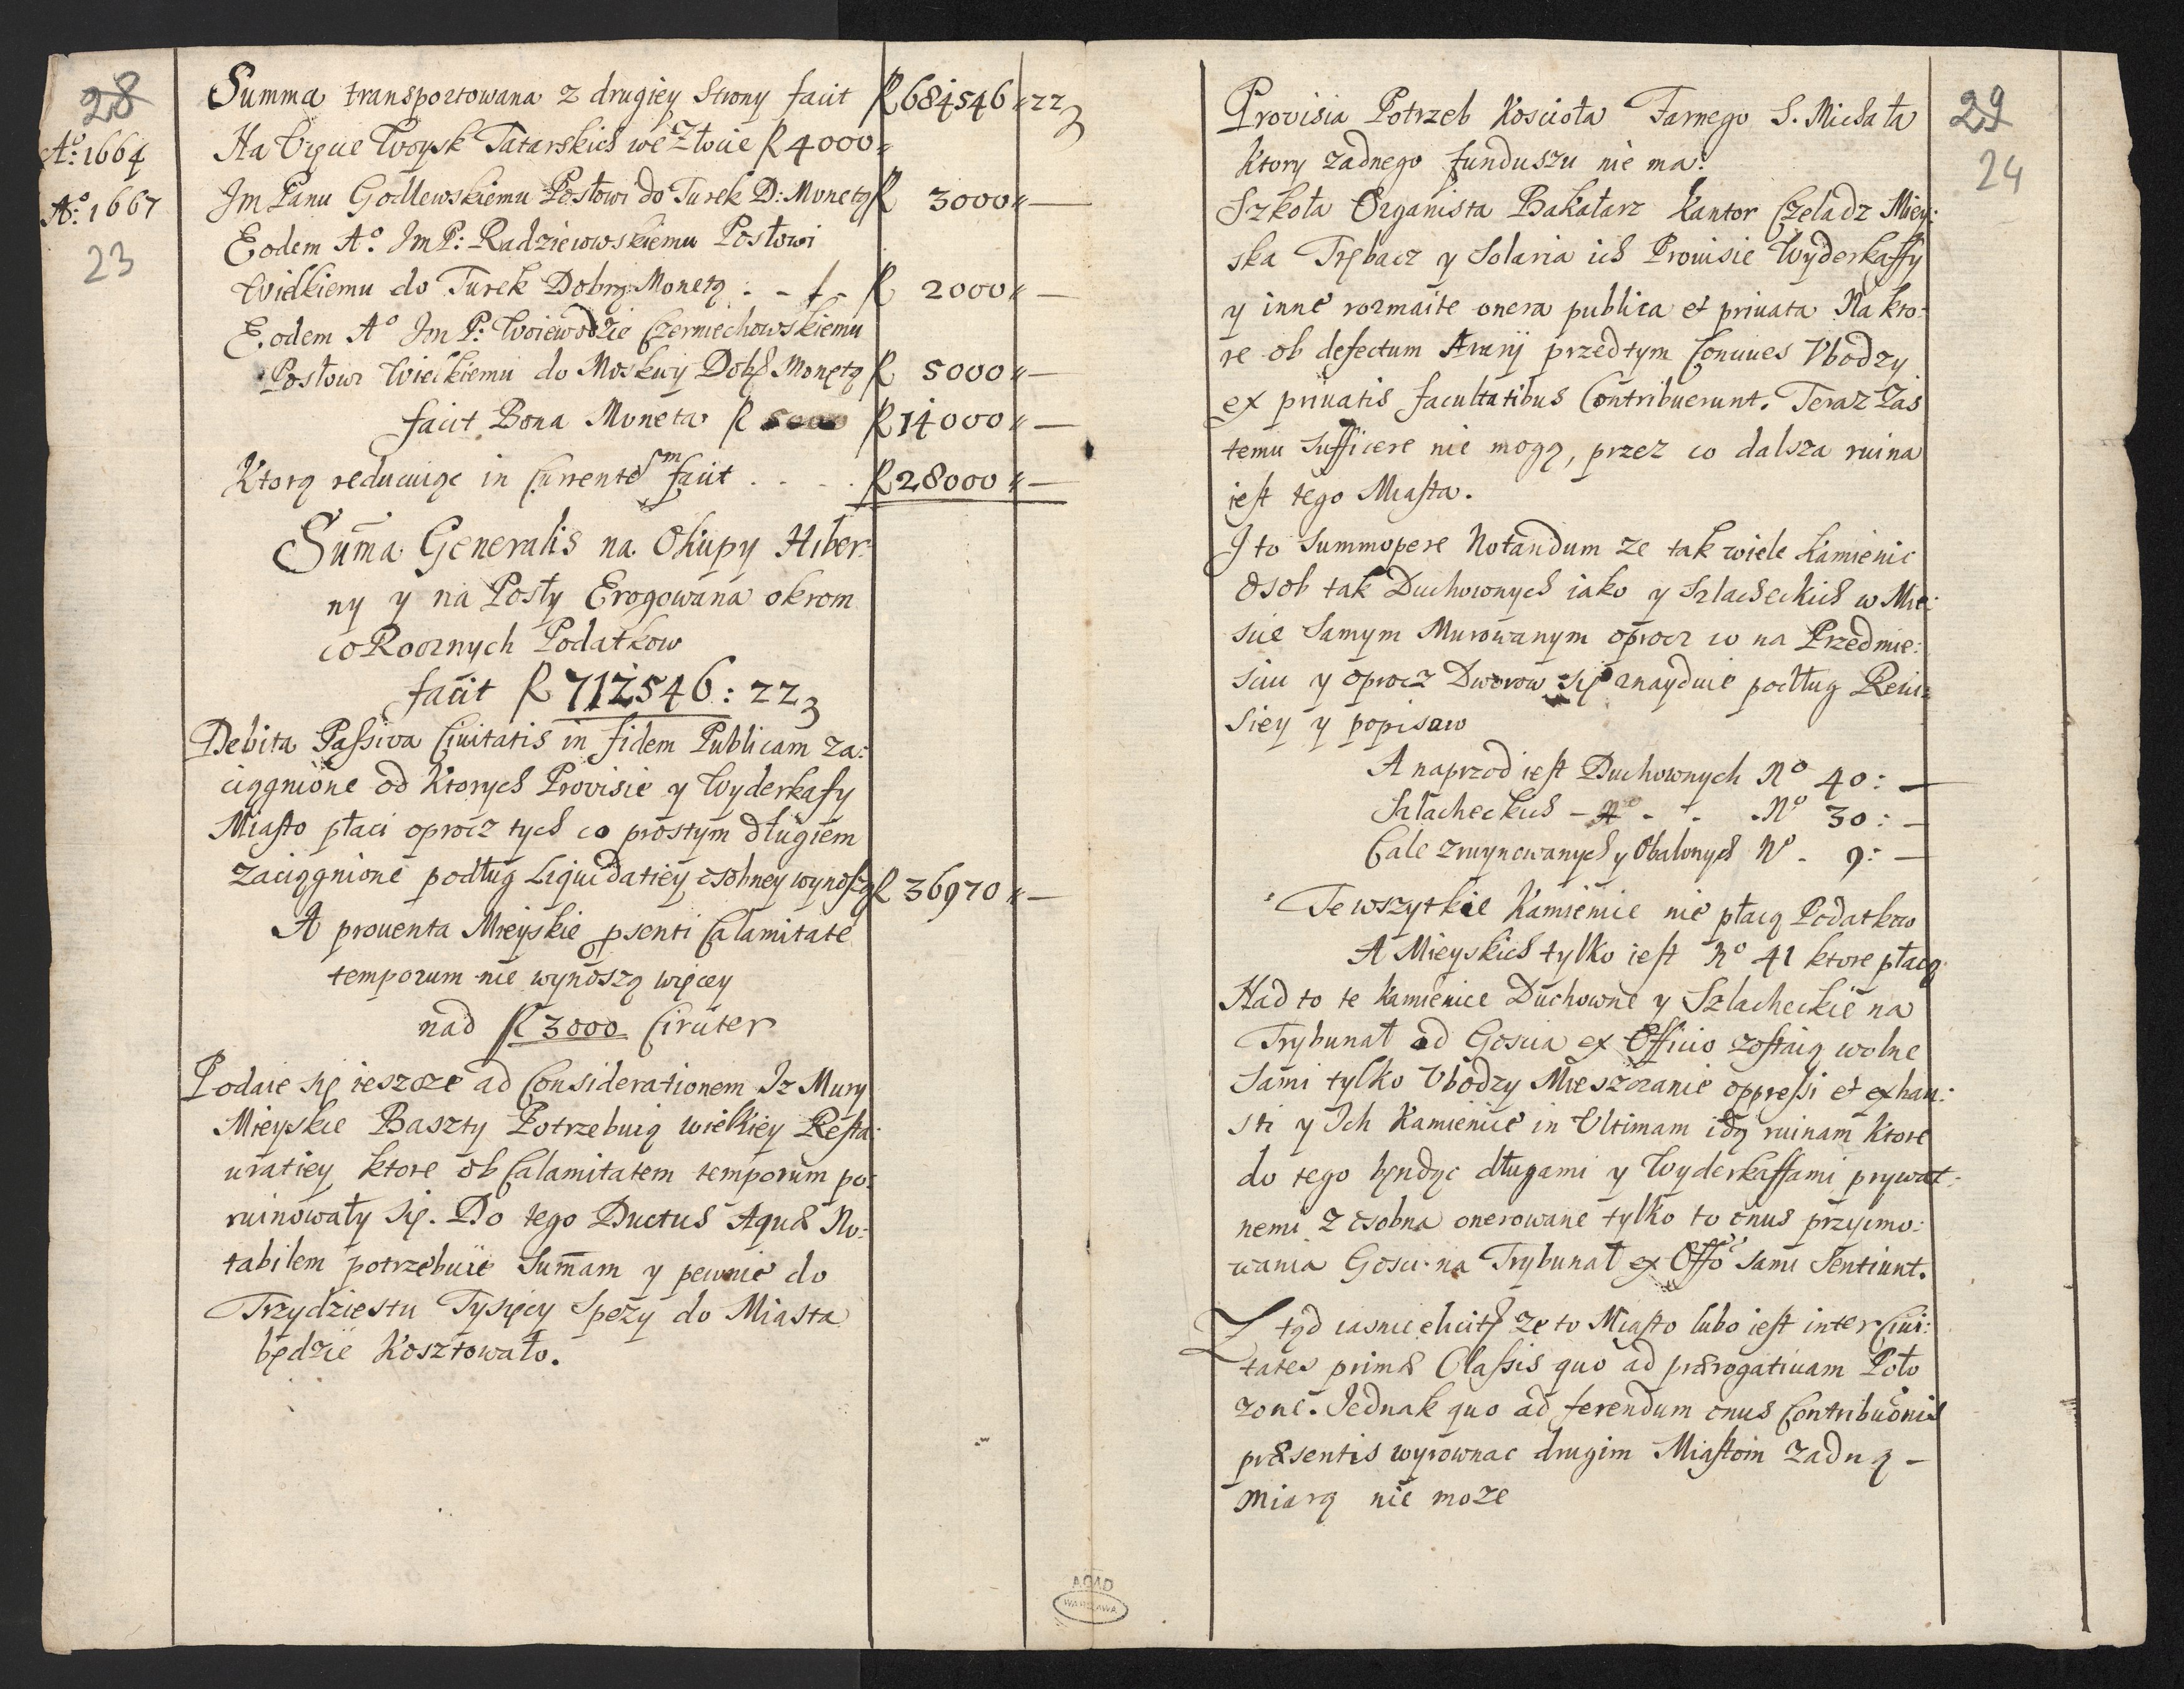 28
23
Summa transportowana z drugiey Strony facit R 684546 " 22 3
Aō: 1664 Na Ligue Woysk Tatarskich we Zlocie R 4000 "
Aō: 1667 Jm Panu Godlewskiemu Posłowi do Turek D: Monetą R 3000 " —
Eodem Aō. Jm P: Radzieiowskiemu Posłowi
Wielkiemu do Turek Dobrą Monetą . - - R 2000 " —
Eodem Aō Jm P: Woiewodzie Czerniechowskiemu
Posłowi Wielkiemu do Moskwy Dobrą Monętą R 5000 " —
facit Bona Moneta R R 14000 " —
Ktorą reducuiąc in Currentem facit . . . . R 28000 " —
Sum̃a Generalis na Okupy Hiber:
ny y na Posły Erogowana okrom
co Rocznych Podatkow
facit R 712546 : 22 3
Debita Passiva Ciuitatis in fidem Publicam za:
ciągnione od Ktorych Provisie y Wyderkafy
Miasto płaci oprocz tych co prostym długiem
zaciągnione podług Liquidatiey osobney wynoszą R 36970 " —
A prouenta Mieyskie p̃senti Calamitate
temporum nie wynoszą więcey
nad R 3000 Circiter
Podaie się ieszcze ad Considerationem Iz Mury
Mieyskie Baszty Potrzebuią wielkiey Resta:
uratiey ktore ob Calamitatem temporum po:
ruinowały się. Do tego Ductus Aquæ No:
tabilem potrzebuie Sum̃am y pewnie do
Trzydziestu Tysięcy Spezy do Miasta
będzie Kosztowało.
29
24
Provisia Potrzeb Koscioła Farnego S. Michała
Ktory zadnego funduszu nie ma:
Szkoła Organista Bakałarz Kantor Czeladz Miey:
ska Trębacz y Solaria ich Prouisie Wyderkaffy
y inne rozmaite onera publica et priuata Na kto:
re ob defectum Ærarij przedtym Conciues Vbodzy
ex priuatis facultatibus Contribuerunt. Teraz Zas
temu Sufficere nie mogą, przez co dalsza ruina
iest tego Miasta.
I to Summopere Notandum ze tak wiele Kamienic
osob tak Duchownych iako y Szlacheckich w Mie:
scie Samym Murowanym oprocz co na Przedmie:
sciu y oprocz Dworow się znayduie podług Reui:
siey y popisow
A naprzod iest Duchownych Nō 40 : —
Szlacheckich - - . Nō 30 : —
Cale zruynowanych y Obalonych Nō - 9 : —
Te wszytkie Kamienice nie płacą Podatkow
A Mieyskich tylko iest Nō 41 ktore płacą
Nad to te Kamienice Duchowne y Szlacheckie na
Trybunał od Goscia ex Officio zostaią wolne
Sami tylko Vbodzy Mieszczanie oppressi et exhau:
sti y Ich Kamienice in Vltimam idą ruinam Ktore
do tego będąc długami y Wyderkaffami prywat:
nemi z osobna onerowane tylko to onus przyimo:
wania Gosci na Trybunał ex Offō Sami Sentiunt.
Z tąd iasnie elicitur ze to Miasto lubo iest inter Ciui:
tates primæ Classis quo ad prærogatiuam Poło
zone. Jednak quo ad ferendum onus Contribuōnis
præsentis wyrownac drugim Miastom zadną -
Miarą nie moze
AGAD
WARSZAWA